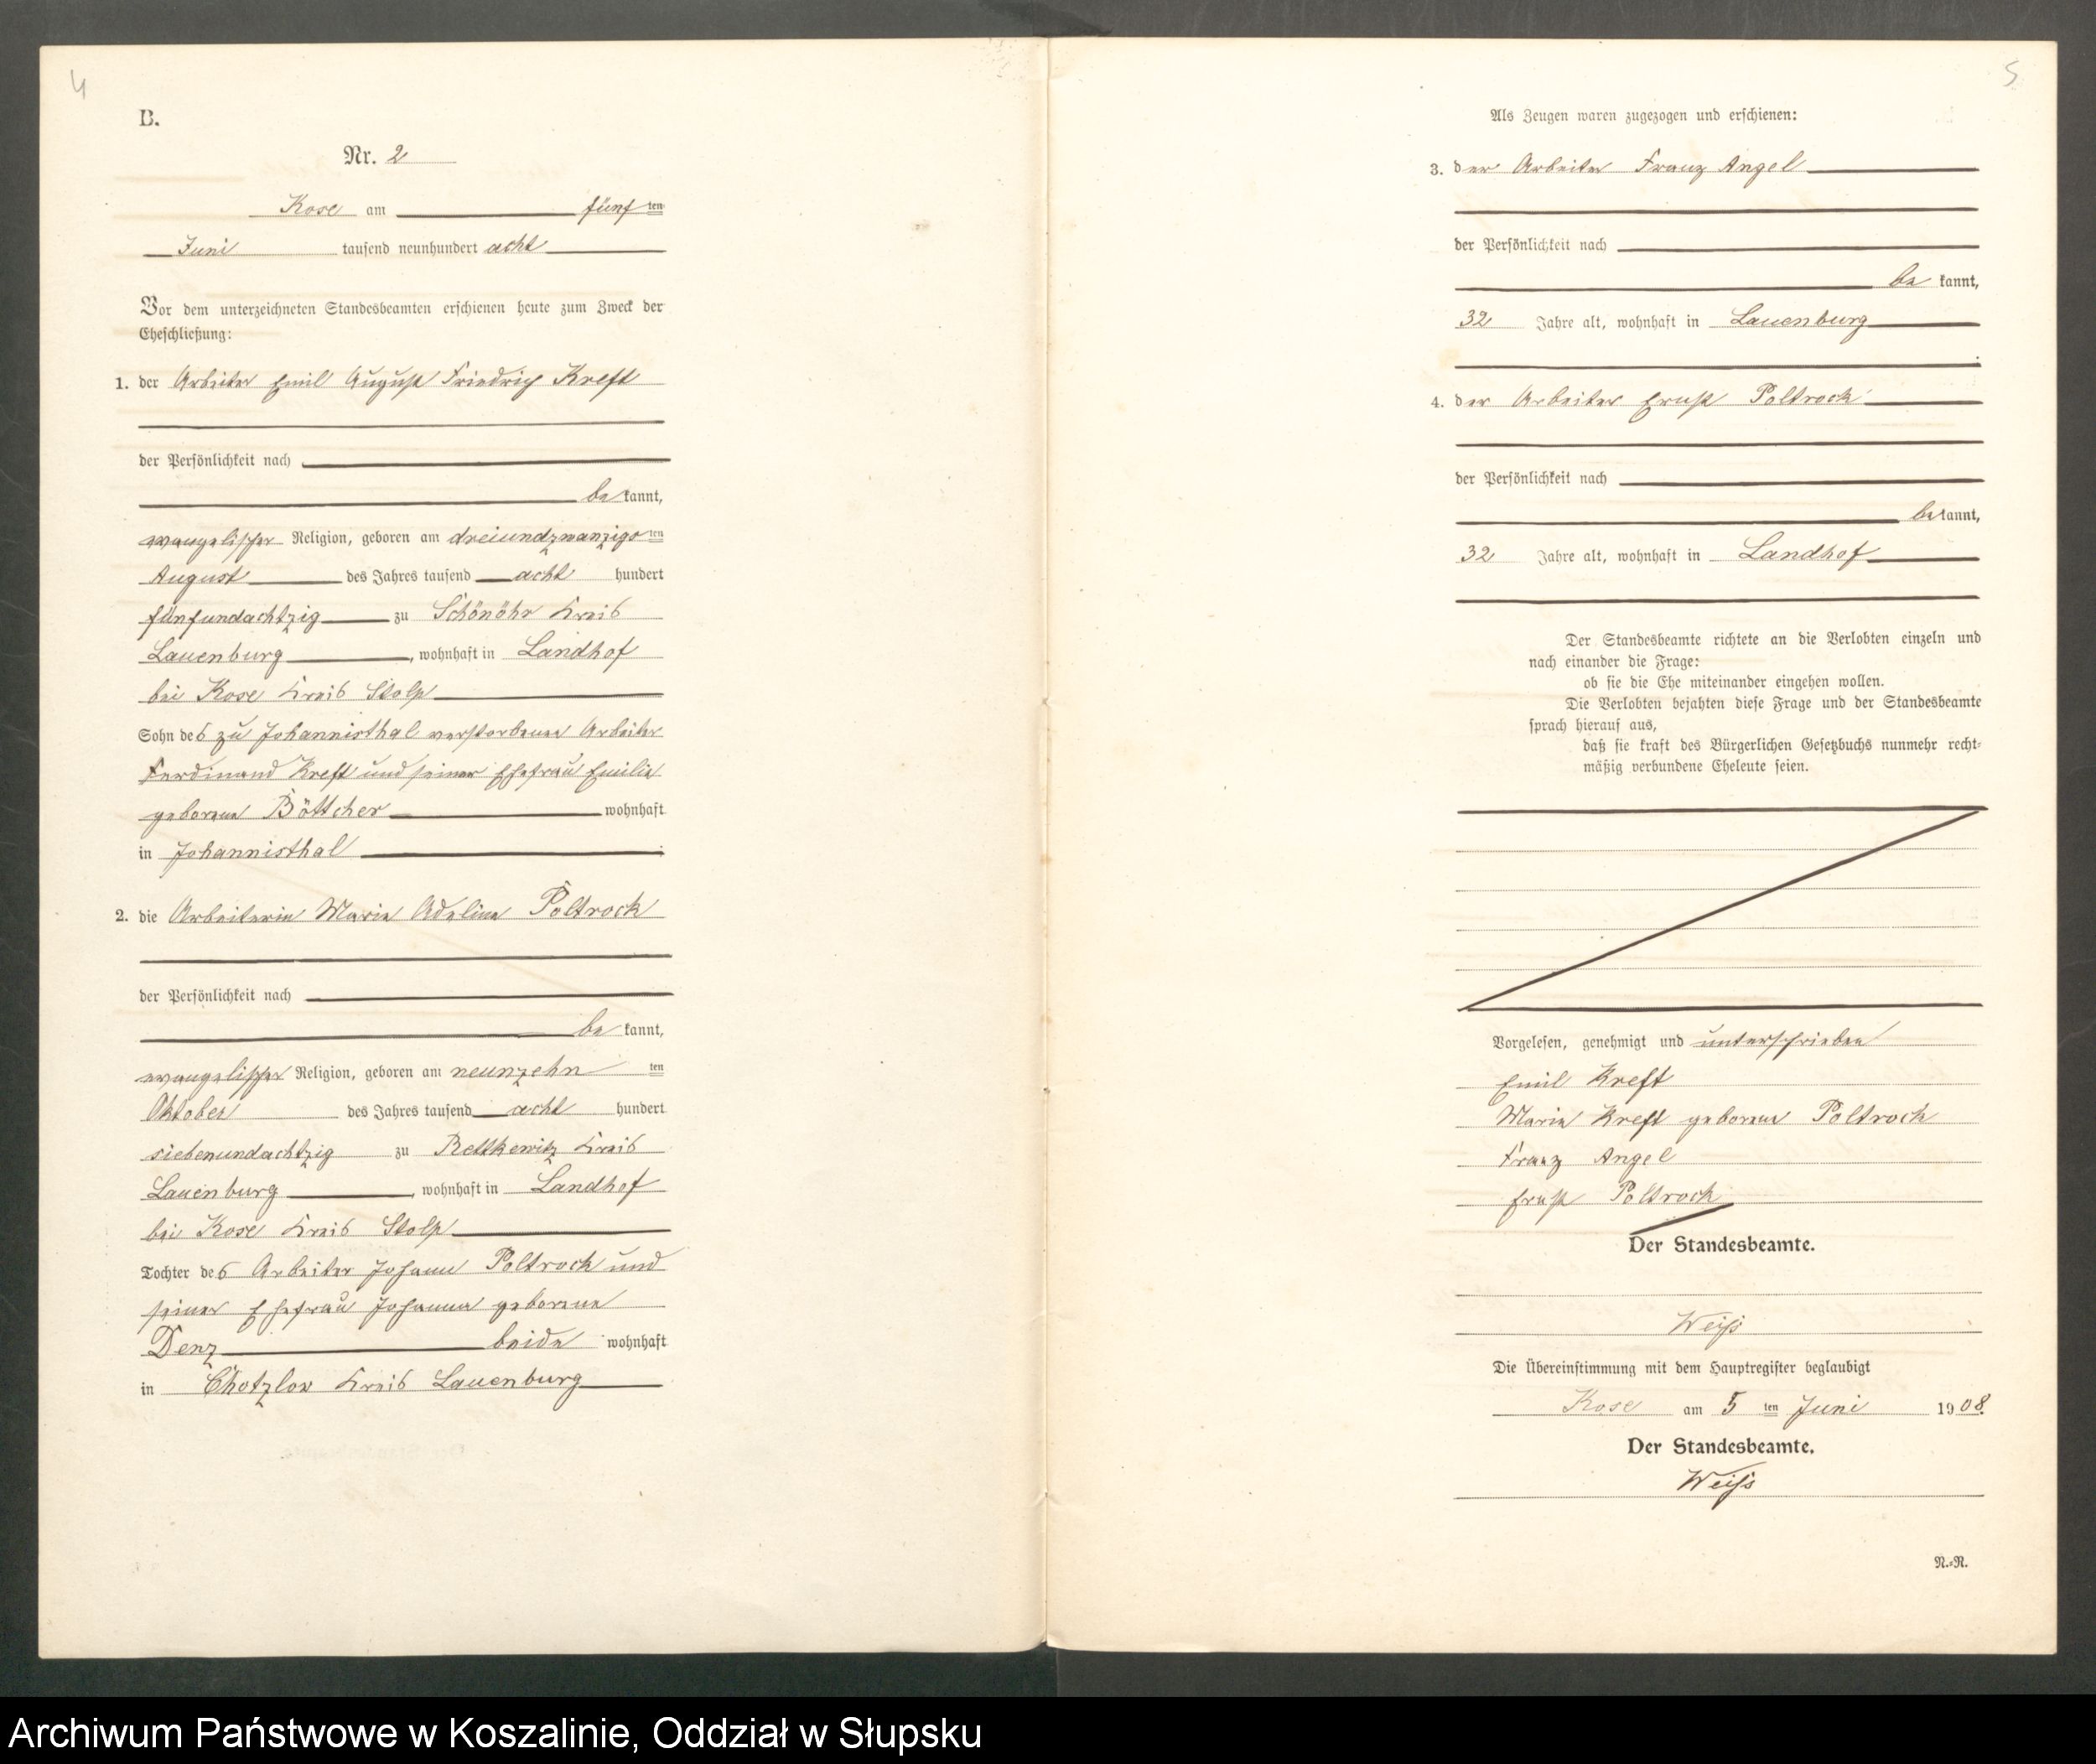 4
B.
Nr. 2
Kose am fünften
Juni tausend neunhundert acht
Vor dem unterzeichneten Standesbeamten erschienen heute zum Zweck der
Eheschließung:
1. der Arbeiter Emil August Friedrich Kreft
der Persönlichkeit nach
bekannt,
evangelischer Religion, geboren am dreiundzwanzigsten
August des Jahres tausend acht hundert
fünfundachtzig zu Schönöhr Kreis
Lauenburg, wohnhaft in Landhof
bei Kose Kreis Stolp
Sohn des zu Johannisthal verstorbenen Arbeiter
Ferdinand Kreft und seiner Ehefrau Emilie
geborene Böttcher wohnhaft
in Johannisthal
2. die Arbeiterin Marie Adeline Poltrock
der Persönlichkeit nach
bekannt,
evangelischer Religion, geboren am neunzehnten
Oktober des Jahres tausend acht hundert
siebenundachtzig zu Rettkewitz Kreis
Lauenburg, wohnhaft in Landhof
bei Kose Kreis Stolp
Tochter des Arbeiter Johann Poltrock und
seiner Ehefrau Johanna geborene
Denz beide wohnhaft
in Chotzlow Kreis Lauenburg
5
Als Zeugen waren zugezogen und erschienen:
3. der Arbeiter Franz Angel
der Persönlichkeit nach
bekannt,
32 Jahre alt, wohnhaft in Lauenburg
4. der Arbeiter Ernst Poltrock
der Persönlichkeit nach
bekannt,
32 Jahre alt, wohnhaft in Landhof
Der Standesbeamte richtete an die Verlobten einzeln und
nach einander die Frage:
ob sie die Ehe miteinander eingehen wollen.
Die Verlobten bejahten diese Frage und der Standesbeamte
sprach hierauf aus,
daß sie kraft des Bürgerlichen Gesetzbuchs nunmehr recht-
mäßig verbundene Eheleute seien.
Vorgelesen, genehmigt und unterschrieben
Emil Kreft
Marie Kreft geborene Poltrock
Franz Angel
Ernst Poltrock
Der Standesbeamte.
Weiß
Die Übereinstimmung mit dem Hauptregister beglaubigt
Kose am 5ten Juni 1908.
Der Standesbeamte.
Weiß
N.-N.
Archiwum Państwowe w Koszalinie, Oddział w Słupsku